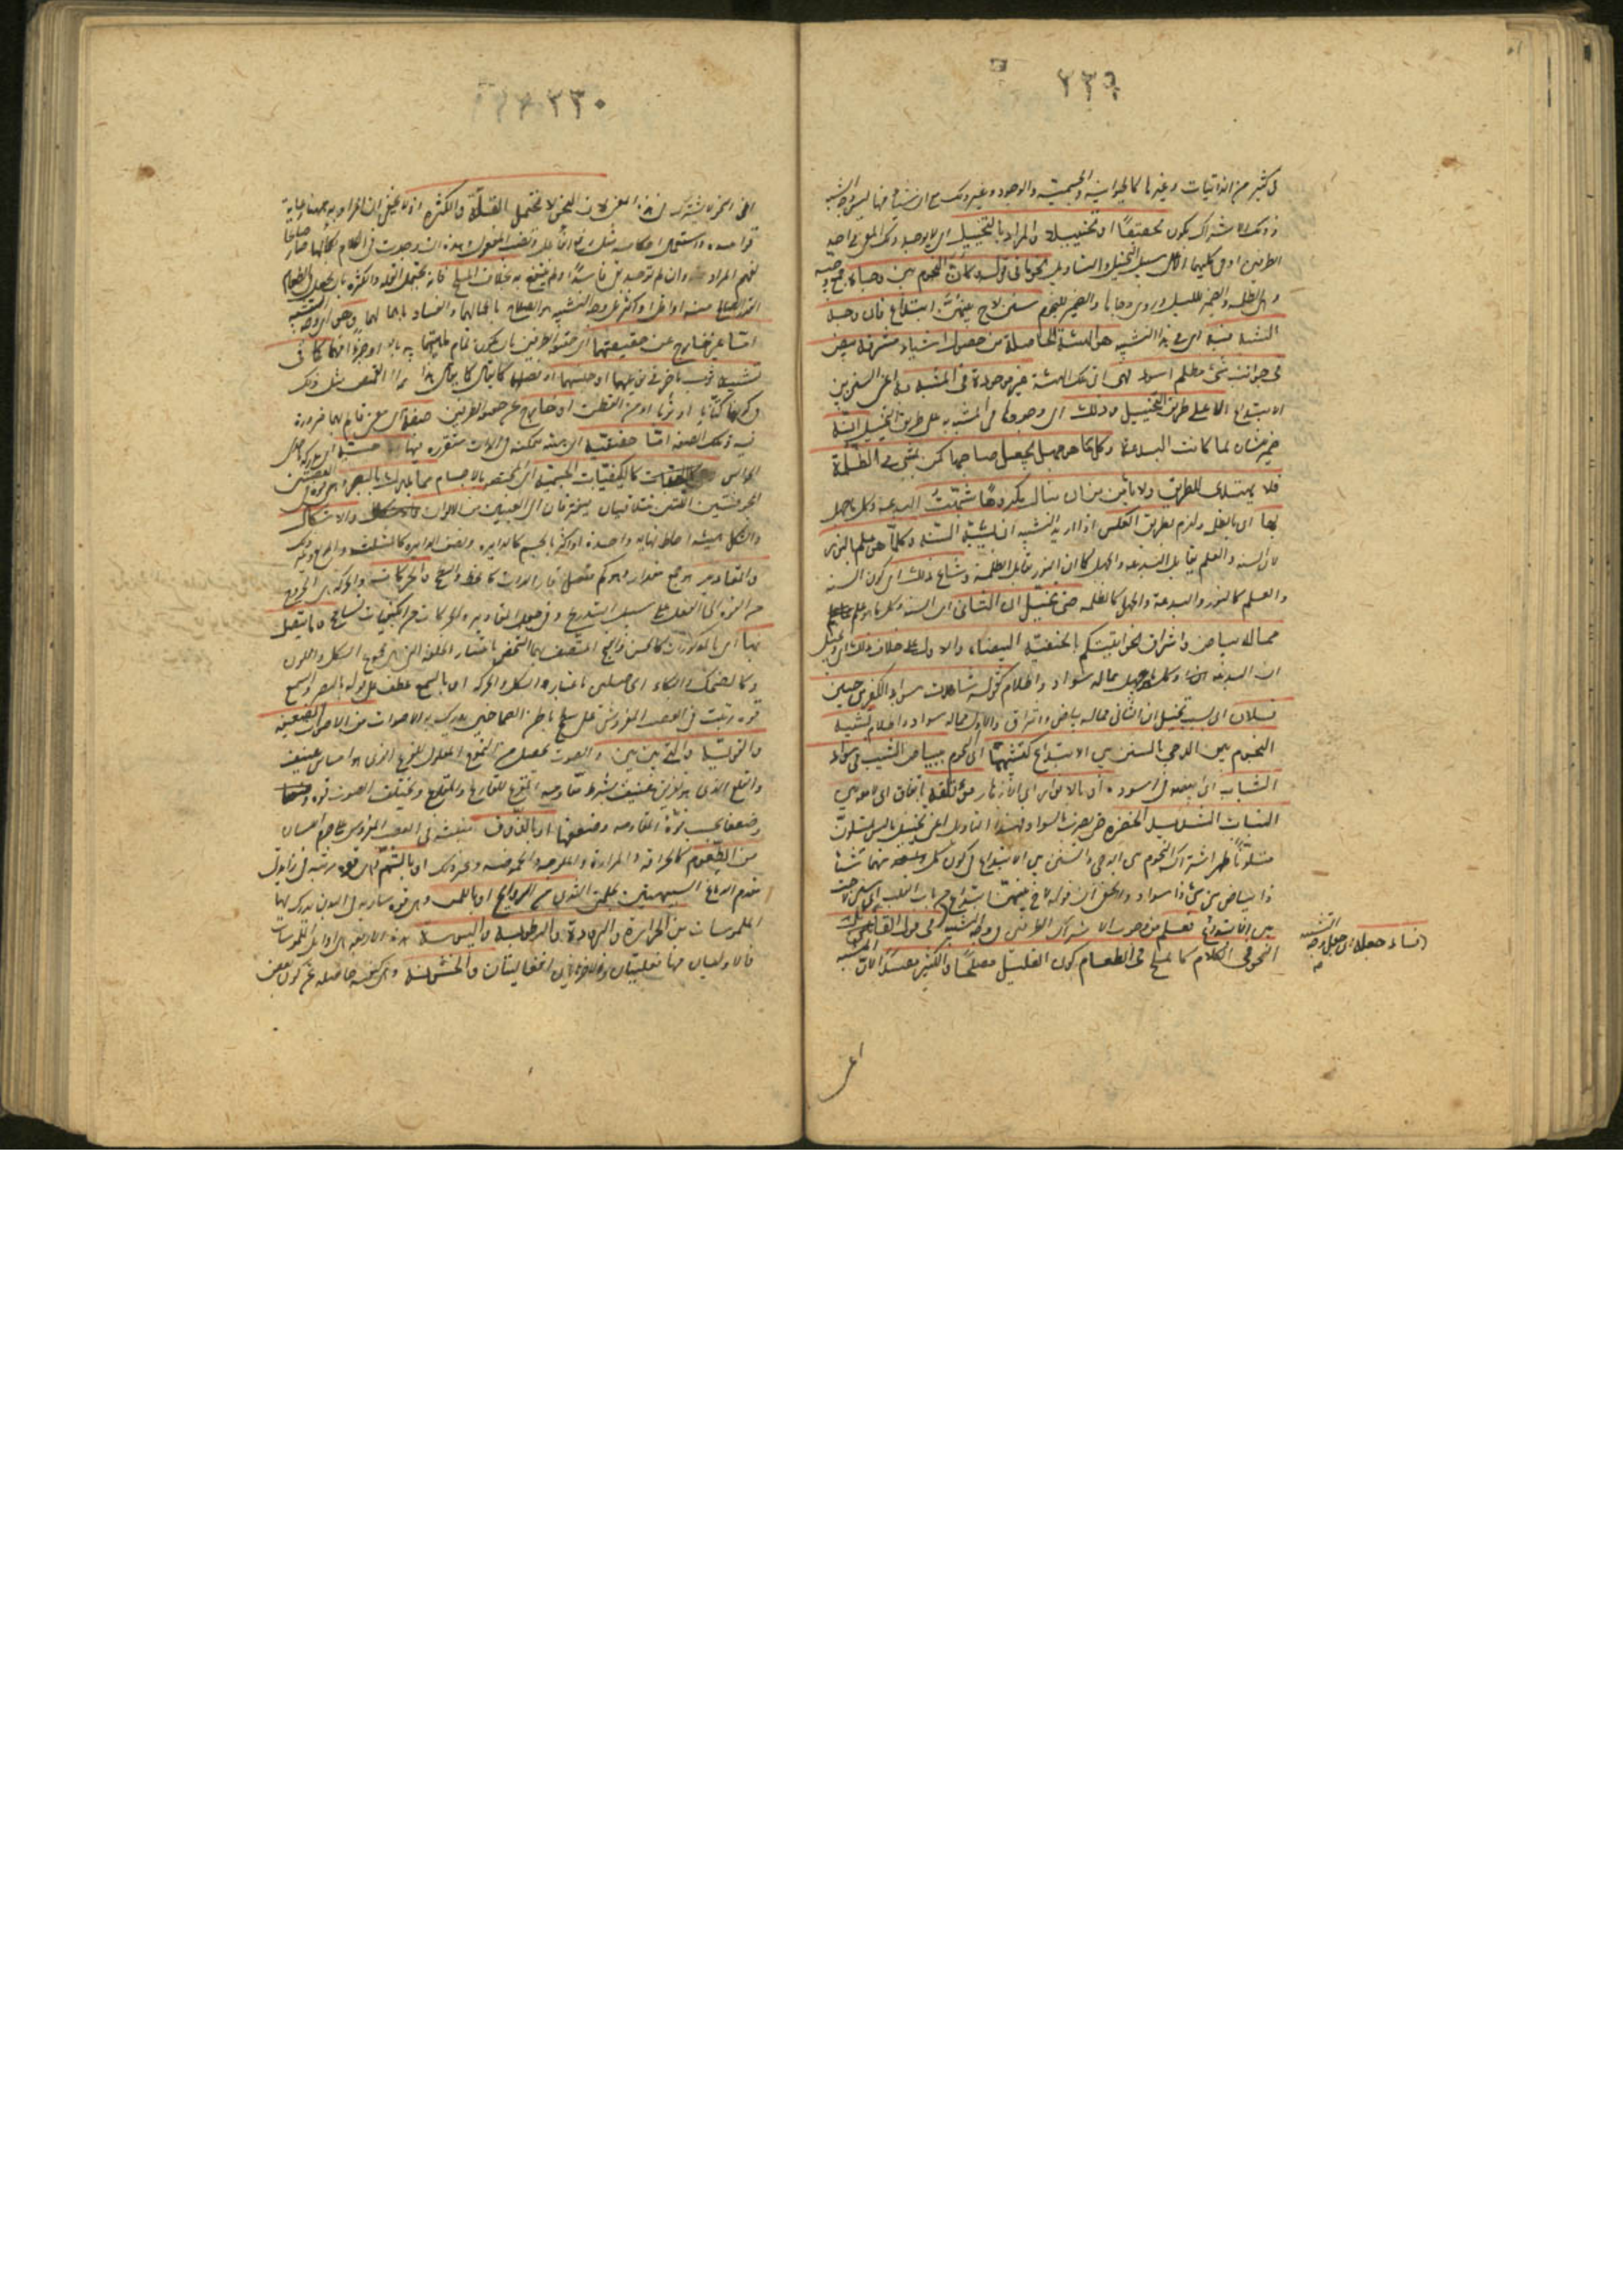 ٢٢٩
في كثير من الذاتيات وغيرها كالحيوانية والجسمية والوجود وغير ذلك مع ان شيئا منها ليس وجه الشبه
وذلك الاشتراك يكون تحقيقا او تخييلا والمراد بالتخييل ان لا يوجد ذلك المعنى في احد
الطرفين او في كليهما الا على سبيل التخييل والتأويل نحو ما في قوله وكأن النجوم بين دجاه جمع دجية
وهي الظلمة والضمير لليل وروي دجاها والضمير للنجوم سنن لاح بينهن ابتداع فان وجه
الشبه فيه اي في هذا التشبيه هو الهيئة الحاصلة من حصول اشياء مشرقة بيض
في جوانب شيء مظلم اسود فهي اي تلك الهيئة غير موجودة في المشبه به اعني السنن بين
الابتداع الا على طريق التخييل وذلك اي وجودها في المشبه به على طريق التخييل انه
ضمير شان لما كانت البدعة وكل ما هو جهل يجعل صاحبها كمن يمشي في الظلمة
فلا يهتدي للطريق ولا يأمن من ان ينال مكروها شبهت البدعة وكل ما هو جهل
بها اي بالظلمة ولزم بطريق العكس اذا اريد التشبيه ان يشبه السنة وكلما هو علم بالنور
لان السنة والعلم يقابل البدعة والجهل كما ان النور يقابل الظلمة وشاع ذلك اي كون السنة
والعلم كالنور والبدعة والجهل كالظلمة حتى تخيل ان الثاني اي السنة وكل ما هو علم
مما له بياض واشراق نحو اتيتكم بالحنيفية البيضاء والاول على خلاف ذلك اي وتخيل
ان البدعة وكل ما هو جهل مما له سواد واظلام كقولك شاهدت سواد الكفر من جبين
فلان اي بسبب تخيل ان الثاني مما له بياض واشراق والاول مما له سواد واظلام تشبيه
النجوم بين الدجى بالسنن بين الابتداع كتشبيهها اي النجوم ببياض الشيب في سواد
الشباب اي ابيضه في اسوده او بالانوار اي الازهار مؤتلقة بالقاف اي لامعة بين
النبات الشديد الخضرة حتى يضرب الى السواد فبهذا التأويل اعني تخييل ما ليس بمتلون
متلونا ظهر اشتراك النجوم بين الدجى والسنن بين الابتداع في كون كل منهما شيئا
ذا بياض بين شيء ذا سواد ولا يخفى ان قوله لاح بينهن ابتداع من باب القلب اي سنن لاحت
بين الابتداع فعلم من وجوب الاشتراك الطرفين في وجه التشبيه فساد جعله في قول القائل
النحو في الكلام كالملح في الطعام كون القليل مصلحا والكثير مفسدا لان المشبه
فساد جعله اي جعل وجه التشبيه
اعني
٢٣٠
اعني النحو لا يشترك في هذا المعنى لان النحو لا يحتمل القلة والكثرة اذ لا يخفى ان المراد به ههنا رعاية
قواعده واستعمال احكامه مثل رفع الفاعل ونصب المفعول وهذه ان وجدت في الكلام بكمالها صار صالحا
لفهم المراد وان لم توجد بقي فاسدا ولم ينتفع به بخلاف الملح فانه يحتمل القلة والكثرة بان يجعل في الطعام
القدر الصالح منه او اقل او اكثر بل وجه التشبيه هو الصلاح باعمالهما والفساد باهمالهما وهو اي وجه التشبيه
اما غير خارج عن حقيقتهما اي حقيقة الطرفين بان يكون تمام ماهيتهما او جزءا منهما كما في
تشبيه ثوب بآخر في نوعهما او جنسهما او فصلهما كما يقال هذا القميص مثل ذلك
في كونهما كتانا او ثوبا او من القطن او خارج عن حقيقة الطرفين صفة اي معنى قائم بهما ضرورة
وتلك الصفة اما حقيقية اي هيئة متمكنة في الذات متقررة فيها حسية اي مدركة باحدى
الحواس كالكيفيات الجسمية اي المختصة بالاجسام مما يدرك بالبصر وهي قوة مرتبة في العصبتين
المجوفتين اللتين تتلاقيان فتفترقان الى العينين من الالوان والاشكال
والشكل هيئة احاطة نهاية واحدة او اكثر بالجسم كالدائرة ونصف الدائرة كالمثلث والمربع وغير ذلك
والمقادير جمع مقدار وهو كم متصل قار الذات كالخط والسطح والحركات والحركة هي الخروج
من القوة الى الفعل على سبيل التدريج وفي جعل المقادير والحركات من الكيفيات تسامح وما يتصل
بها اي بالمذكورات كالحسن والقبح المتصف بهما الشخص باعتبار الخلقة التي هي مجموع الشكل واللون
وكالضحك والبكاء الحاصلين باعتبار الشكل والحركة او بالسمع عطف على قوله بالبصر والسمع
قوة رتبت في العصب المفروش على سطح باطن الصماخين يدرك بها الاصوات من الاصوات الضعيفة
والقوية والتي بين بين والصوت يحصل من التموج المعلول للقرع الذي هو امساس عنيف
والقلع الذي هو تفريق عنيف بشرط مقاومة المقروع للقارع والمقلوع للقالع ويختلف الصوت قوة
وضعفا بحسب قوة المقاومة وضعفها او بالذوق وهي قوة منبثة في العصب المفروش على جرم اللسان
من الطعوم كالحرافة والمرارة والملوحة والحموضة وغير ذلك او بالشم وهي قوة مرتبة في زائدتي
مقدم الدماغ الشبيهتين بحلمتي الثدي من الروائح او باللمس وهي قوة سارية في البدن يدرك بها
الملموسات من الحرارة والبرودة والرطوبة واليبوسة هذه الاربعة هي اوائل الملموسات
فالاوليان منها فعليتان والاخريان انفعاليتان والخشونة وهي كيفية حاصلة عن كون بعض